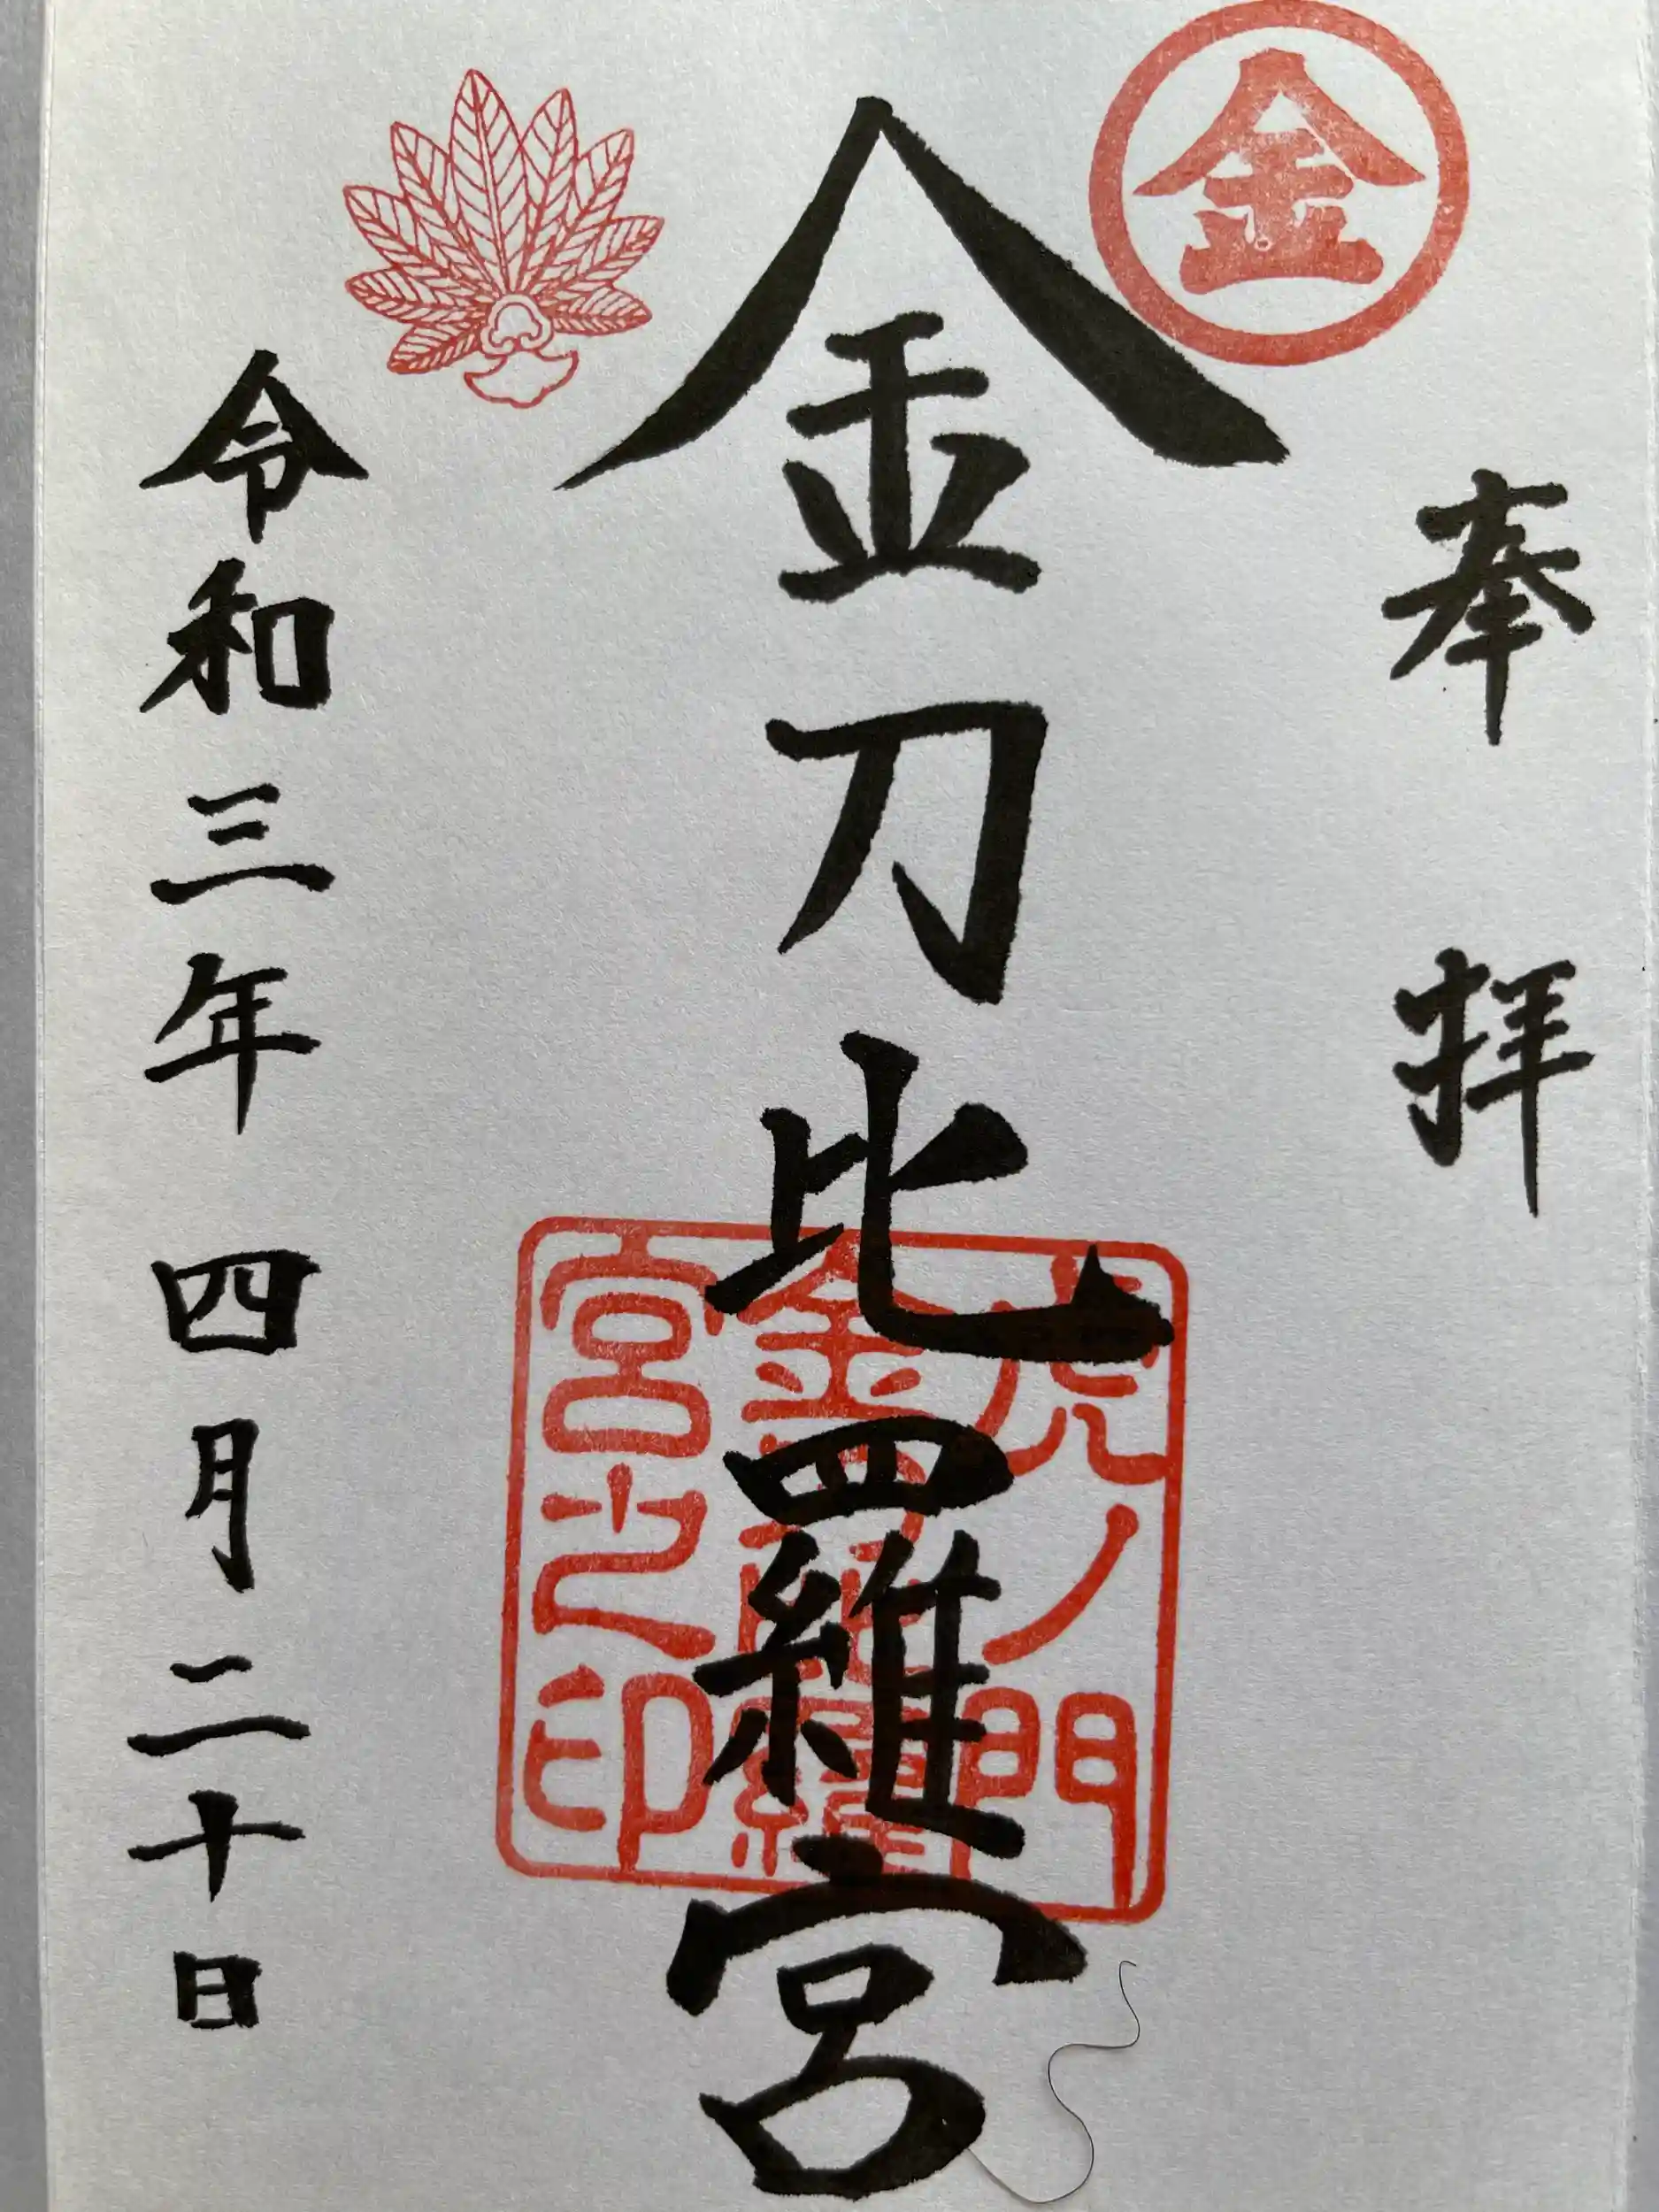 金
奉拝
金刀比羅宮
虎ノ門
金刀比羅
宮之印
令和三年四月二十日